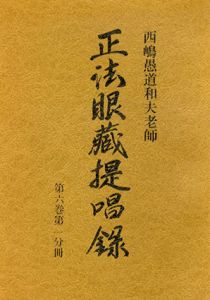 西嶋愚道和夫老師
正法眼藏提唱錄
第六卷第一分冊